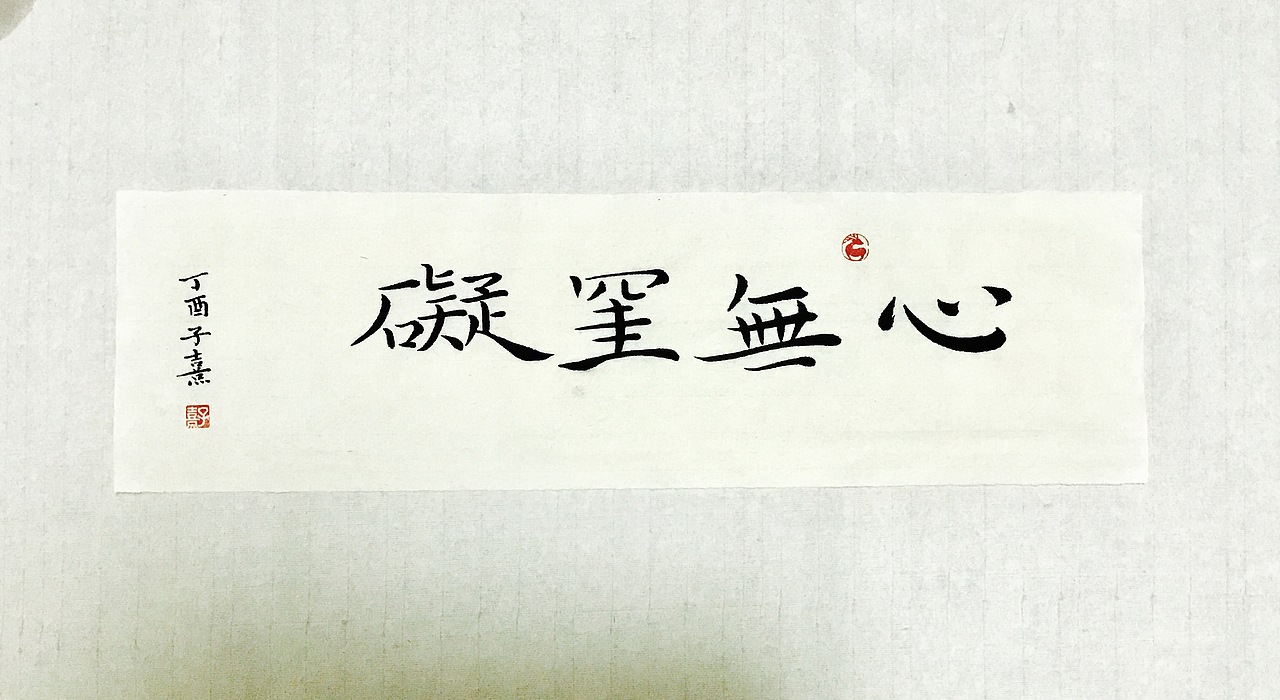 心無罣礙
丁酉子熹
子熹